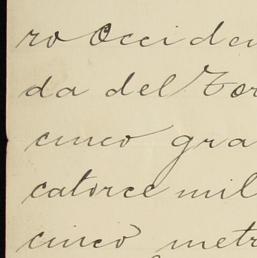 ro Occiden
da del Tor
cinco gra
catorce mil
cinco metr